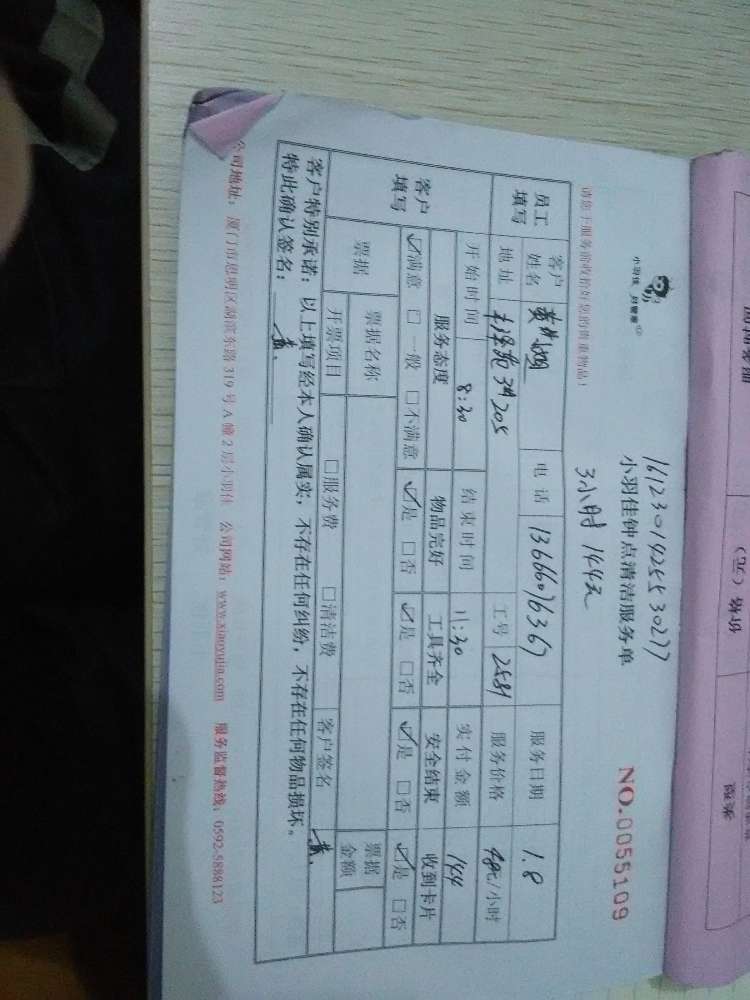 1612301425530277
小羽佳 好管家
小羽佳钟点清洁服务单
NO.0055109
3小时 144元
请您于服务前收拾好您的贵重物品!
员工填写 客户姓名 黄 姐 电话 13666076367 服务日期 1.8
地址 3# 205 工号 2581 服务价格 48元/小时
客户填写 开始时间 8:30 结束时间 11:30 实付金额 144
服务态度 物品完好 工具齐全 安全结束 收到卡片
☑满意 □一般 □不满意 ☑是 □否 ☑是 □否 ☑是 □否 ☑是 □否
票据 票据名称 票据金额
开票项目 □服务费 □清洁费 客户签名 黄
客户特别承诺:以上填写经本人确认属实,不存在任何纠纷,不存在任何物品损坏。
特此确认签名: 黄
公司地址:厦门市思明区湖滨东路319号A幢2层小羽佳 公司网站:www.xiaoyujia.com 服务监督热线:0592-5888123